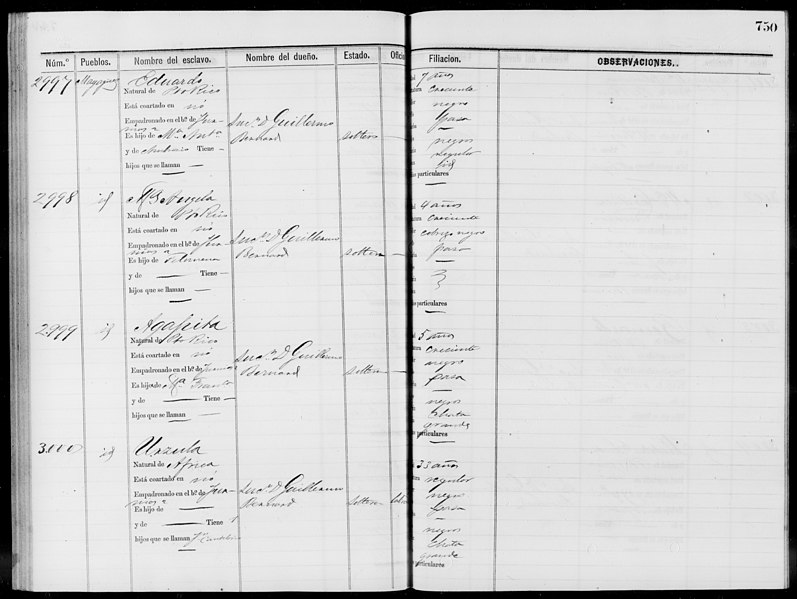 750
Núm.° Pueblos. Nombre del esclavo. Nombre del dueño. Estado. Oficio Filiacion. OBSERVACIONES.
2997 Mayaguez Eduardo
Natural de Pto Rico
Está coartado en nó
Empadronado en el b.° de Jua-
Es hijo de M.ª
y de Tiene —
hijos que se llaman —
Suc.n D Guillermo
Bernard
soltero —
7 años
creciente
negro
pasa
—
negros
regular
particulares
—
2998 id Mª Angela
Natural de Pto Rico
Está coartado en nó
Empadronado en el b.° de Jua-
Es hijo de Filomena
y de — Tiene —
hijos que se llaman —
Suc.n D Guillermo
Bernard
soltera —
4 años
creciente
negro
pasa
—
particulares
—
2999 id Agapita
Natural de Pto Rico
Está coartado en nó
Empadronado en el b.° de
Es hijo de Mª
y de — Tiene —
hijos que se llaman —
Suc.n D Guillermo
Bernard
soltera —
5 años
creciente
negro
pasa
—
negros
chata
grande
particulares
—
3000 id Urzula
Natural de Africa
Está coartado en nó
Empadronado en el b.° de Jua-
Es hijo de —
y de — Tiene 1
hijos que se llaman
—
Suc.n D Guillermo
Bernard
soltera
33 años
regular
negro
pasa
—
negros
chata
grande
particulares